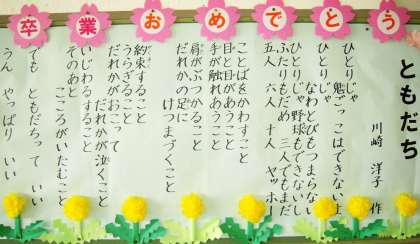 卒業おめでとう
ともだち
川崎 洋子 作
ひとりじゃ
鬼ごっこはできない
ひとりじゃ
なわとびもつまらない
ひとりじゃ野球もできないし
ふたりもだめ 三人でもまだ
五人 六人 十人 ヤッホー
ことばをかわすこと
目と目があうこと
手が触れあうこと
肩がぶつかること
だれかの足に
けつまづくこと
約束すること
だれかがおこって
だれかが泣くこと
いじわるすること
そのあと
こころがいたむこと
でも ともだちって いい
うん やっぱり いい